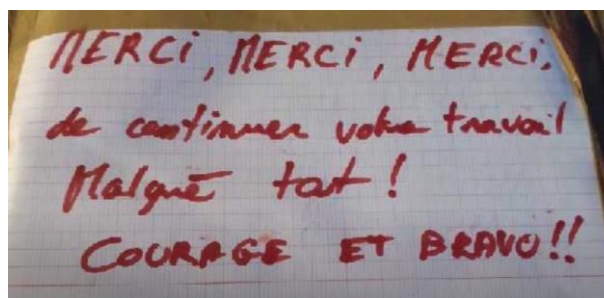 MERCi, MERCi, MERCi,
de continuer votre travail
Malgré tout !
COURAGE ET BRAVO!!